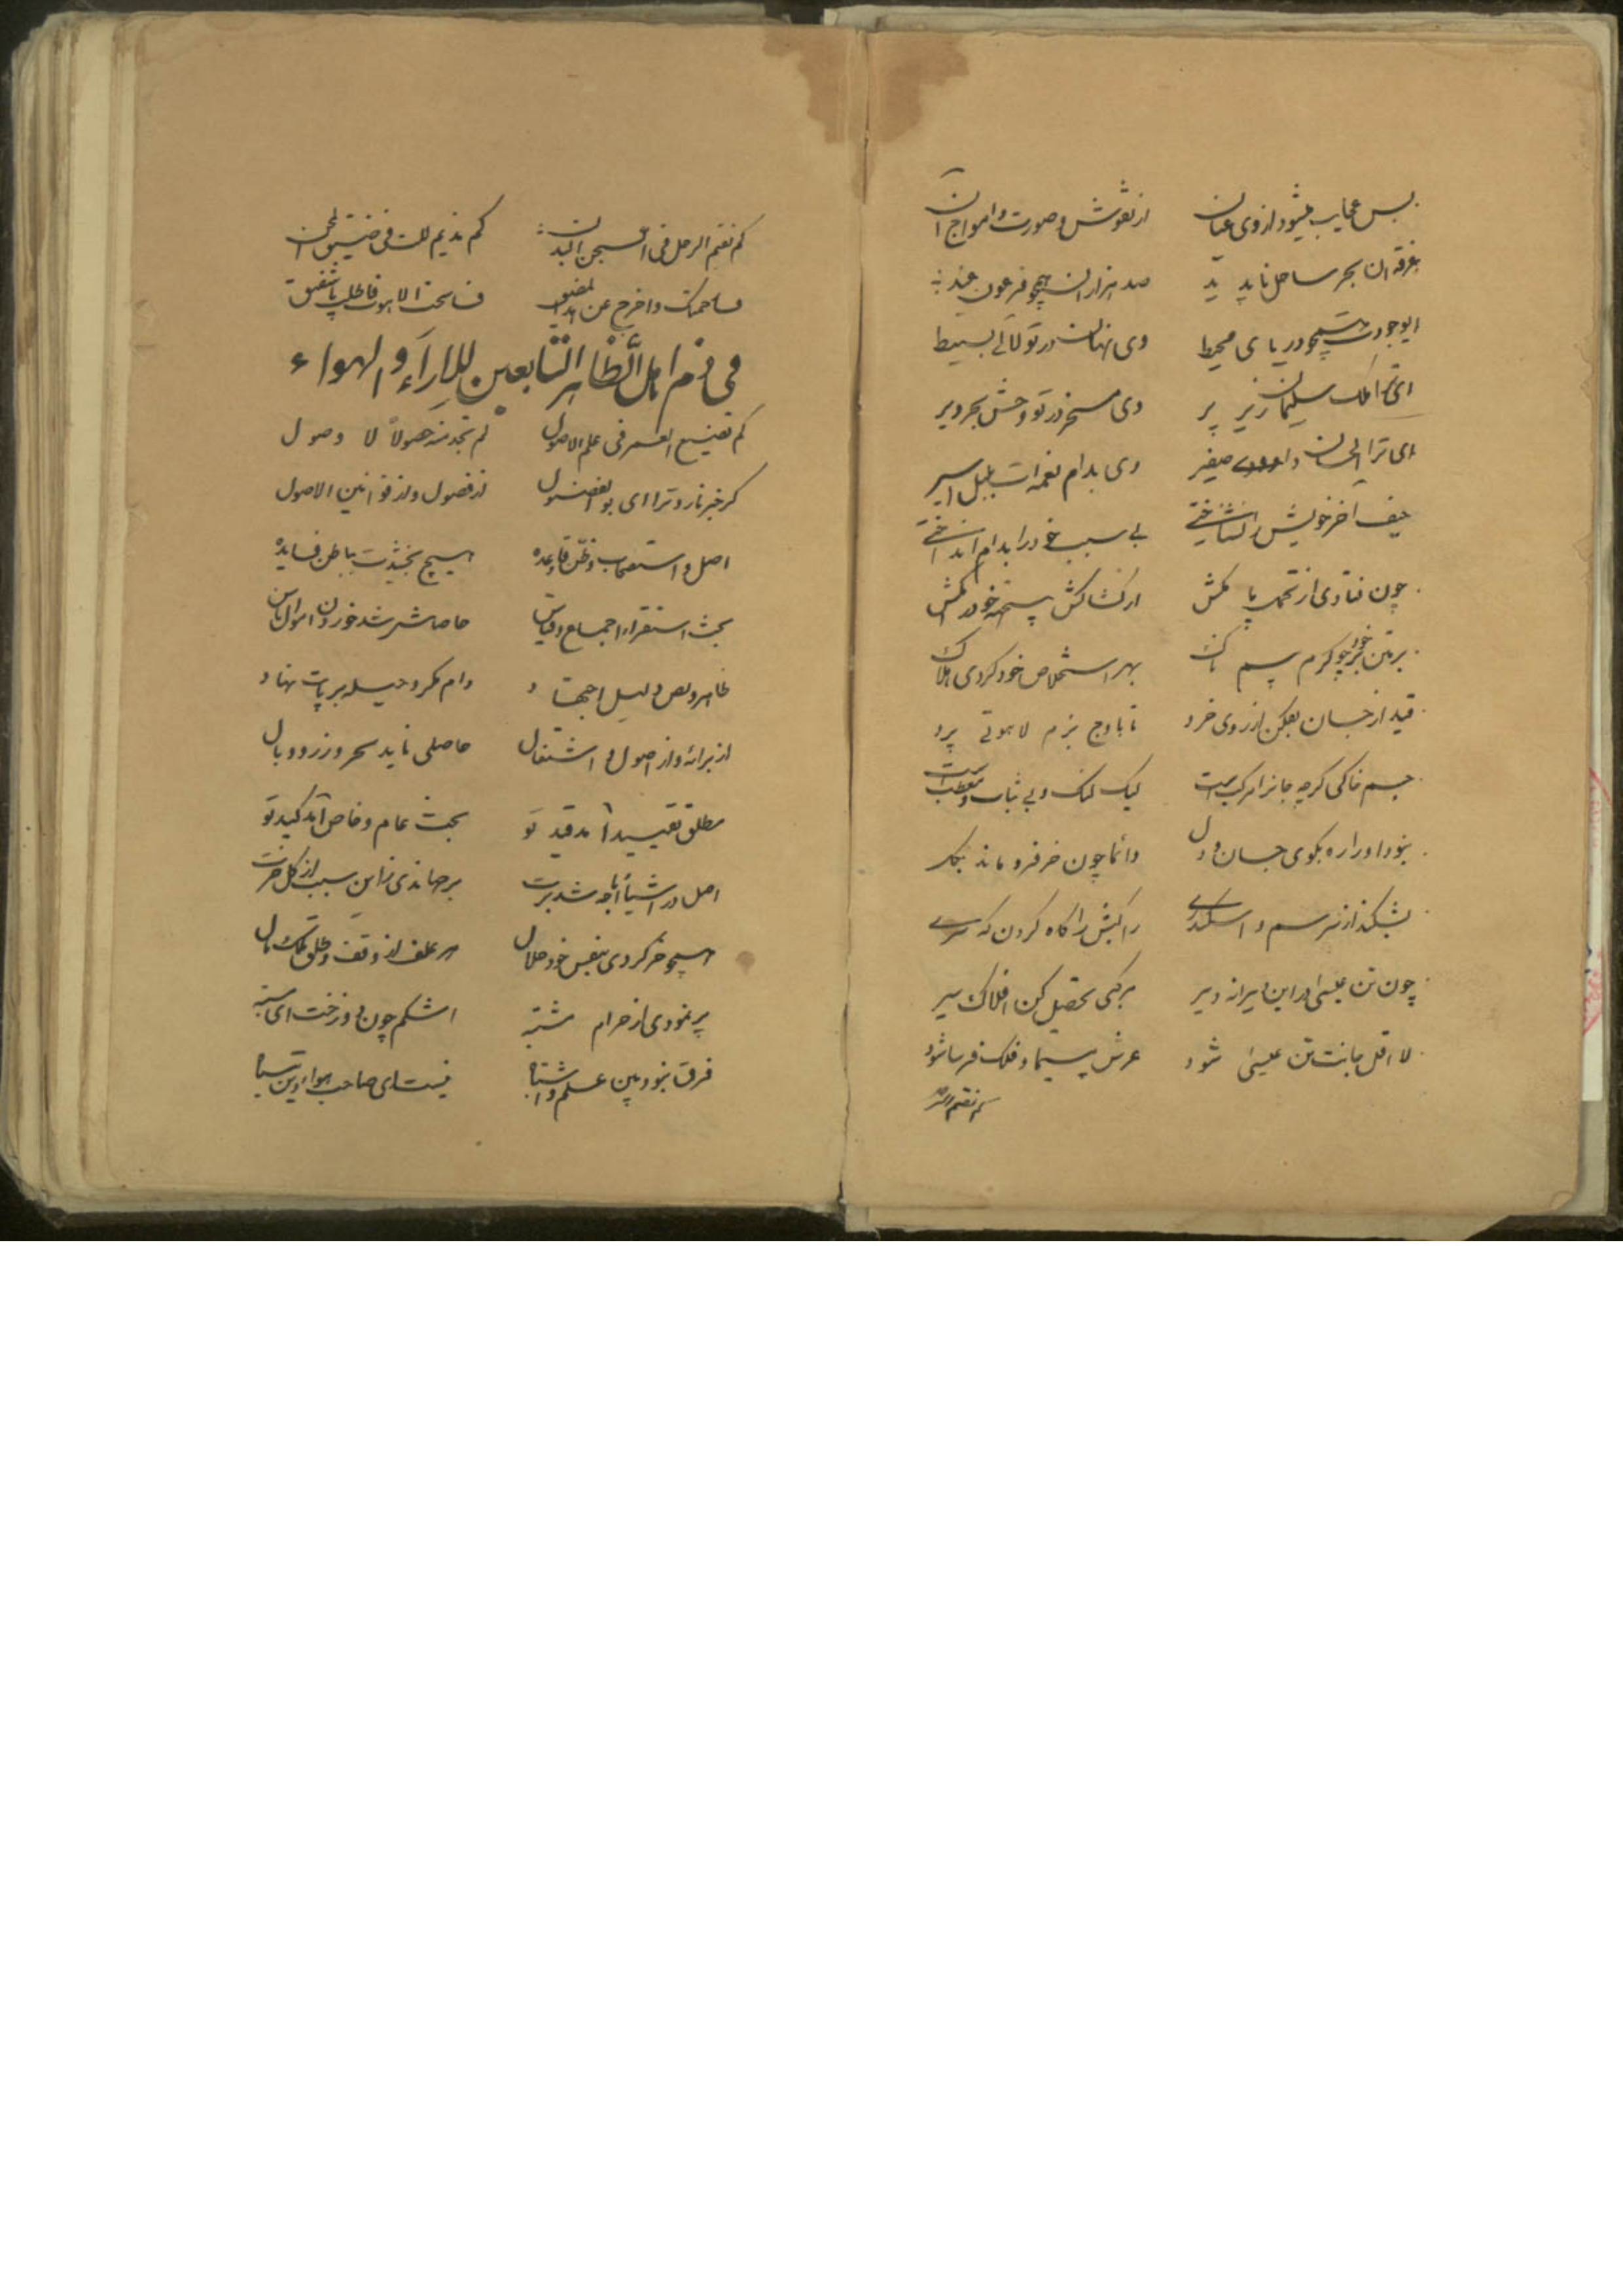 بس عجایب میشود از وی عیان از نقوش و صورت و امواج آن
غرقه ان بحر ساحل ناپدید صد هزاران همچو فرعون عنید
ایوجودت همچو دریای محیط وی نهان در تو لآلی بسیط
ای ترا ملک سلیمان زیر پر وی مسخر در تو وحش بحر و بر
ای ترا الحان صفیر وی بدام نغمه ات بلبل اسیر
حیف آخر خویش را نشناختی بی سبب خود را بدام انداختی
چون فتادی از کشاکش همچو خود را مکش
بر تن خود بر چو کرم پیله تاک بهر استخلاص خود کردی هلاک
قید از جسان بفکن از روی خرد تا باوج بزم لاهوتی پرد
جسم خاکی کرچه جانرا مرکب است لیک لنک و بی ثبات و
نبود او را ره بکوی جان و دل دائما چون خر فرو ماند بکل
بشکند از سرسم و اسکندری راکبش را کاه کردن که سری
چون تن عیسی در این دیرانه دیر مرکبی تحصیل کن افلاک سیر
لا اقل جانت تن عیسی شود عرش سیما و فلک فرسا شود
کم نقیم
کم نقیم الرحل فی السجن البدن کم ندیم فی ضیق
واخرج عن هذا المضیق لاهوت فاطلب یا شفیق
فی ذم اهل الظاهر التابعین للاراء و الهواء
کم تضیع العمر فی علم الاصول لم تجد منه حصولا لا وصول
کر خبر نارد ترا ای بو الفضول از فصول و از قوانین الاصول
اصل و استصحاب و ظن و قاعده هیچ بخشیدت بباطن فایده
بحث استقرا و اجماع و قیاس حاصلش شد خوردن اموال ناس
ظاهر و نص و دلیل اجتهاد دام مکر و حیله بر پایت نهاد
از برائه و از اصول و اشتغال حاصلی ناید بجز وزر و وبال
مطلق تقیید آمد قید تو بحث عام و خاص آمد کید تو
اصل در اشیا اباحه شد برت برجهاندی زاین سبب از کل خرت
همچو خر کردی بنفس خود حلال هر علف از وقف و طلق و ملک و مال
پر نمودی از حرام مشتبه اشکم چون دوزخت ای
فرق نبود بین علم و اشتباه نیست ای صاحب هوا دین